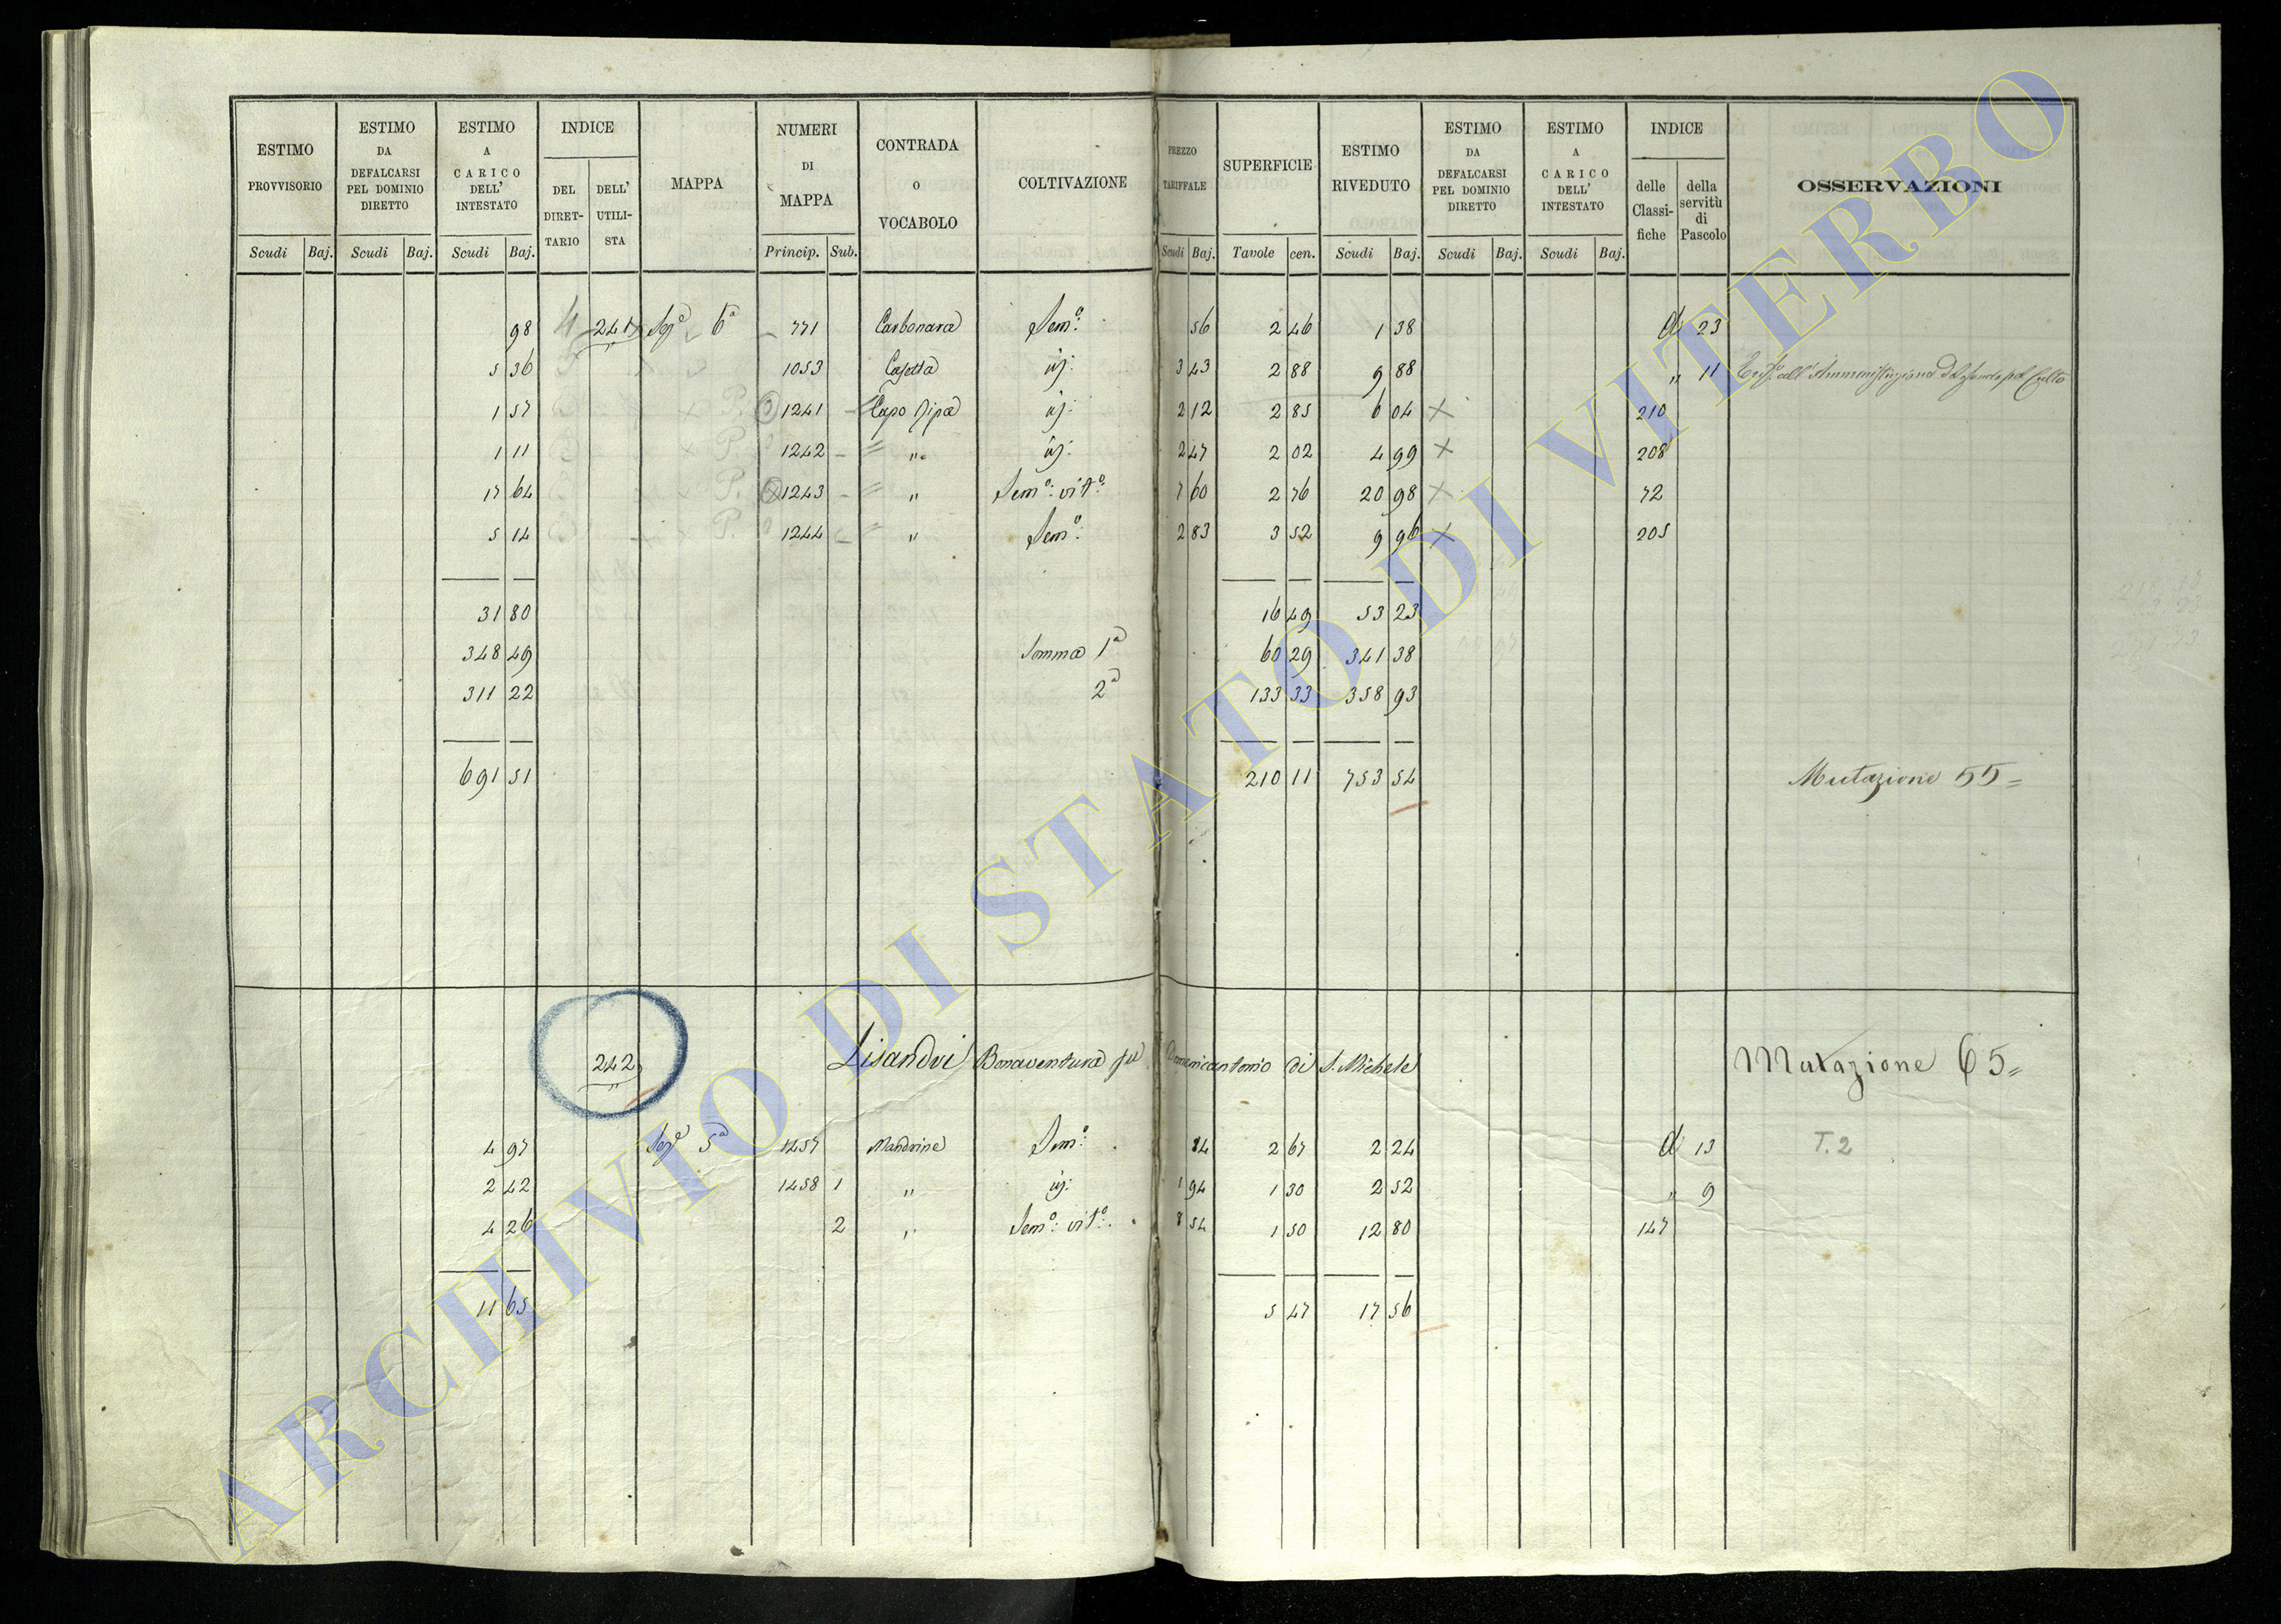 ESTIMO PROVVISORIO | ESTIMO DA DEFALCARSI PEL DOMINIO DIRETTO | ESTIMO A CARICO DELL' INTESTATO | INDICE | MAPPA | NUMERI DI MAPPA | CONTRADA O VOCABOLO | COLTIVAZIONE | PREZZO TARIFFALE | SUPERFICIE | ESTIMO RIVEDUTO | ESTIMO DA DEFALCARSI PEL DOMINIO DIRETTO | ESTIMO A CARICO DELL' INTESTATO | INDICE | OSSERVAZIONI
DEL DIRETTARIO | DELL' UTILISTA | delle Classifiche | della servitù di Pascolo
Scudi | Baj. | Scudi | Baj. | Scudi | Baj. | Princip. | Sub. | Scudi | Baj. | Tavole | cen. | Scudi | Baj. | Scudi | Baj. | Scudi | Baj.
98 | 4 | 241 | Sezᵉ 6ª | 771 | Carbonara | Semº: | 56 | 2 46 | 1 38 | d 23
5 36 | 1053 | Casetta | id: | 3 43 | 2 88 | 9 88 | " 11 | all'Amministrazione del fondo pel Culto
1 57 | P. | 1241 | Capo Ripa | id: | 2 12 | 2 85 | 6 04 | × | 210
1 11 | P. | 1242 | " | id: | 2 47 | 2 02 | 4 99 | × | 208
17 64 | P. | 1243 | " | Semº: vitº: | 7 60 | 2 76 | 20 98 | × | 72
5 14 | P. | 1244 | " | Semº: | 2 83 | 3 52 | 9 96 | × | 205
31 80 | 16 49 | 53 23
348 49 | Somma 1ª | 60 29 | 341 38
311 22 | 2ª | 133 33 | 358 93
691 51 | 210 11 | 753 54 | Mutazione 55=
242 | Lisandri Bonaventura fu Domenicantonio di S. Michele | Mutazione 65=
4 97 | Sezᵉ 5ª | 1457 | Mandrine | Semº: | 84 | 2 67 | 2 24 | d 13 | T. 2
2 42 | 1458 1 | " | id: | 1 94 | 1 30 | 2 52 | " 9
4 26 | 2 | " | Semº: vitº: | 8 54 | 1 50 | 12 80 | 147
11 65 | 5 47 | 17 56
ARCHIVIO DI STATO DI VITERBO